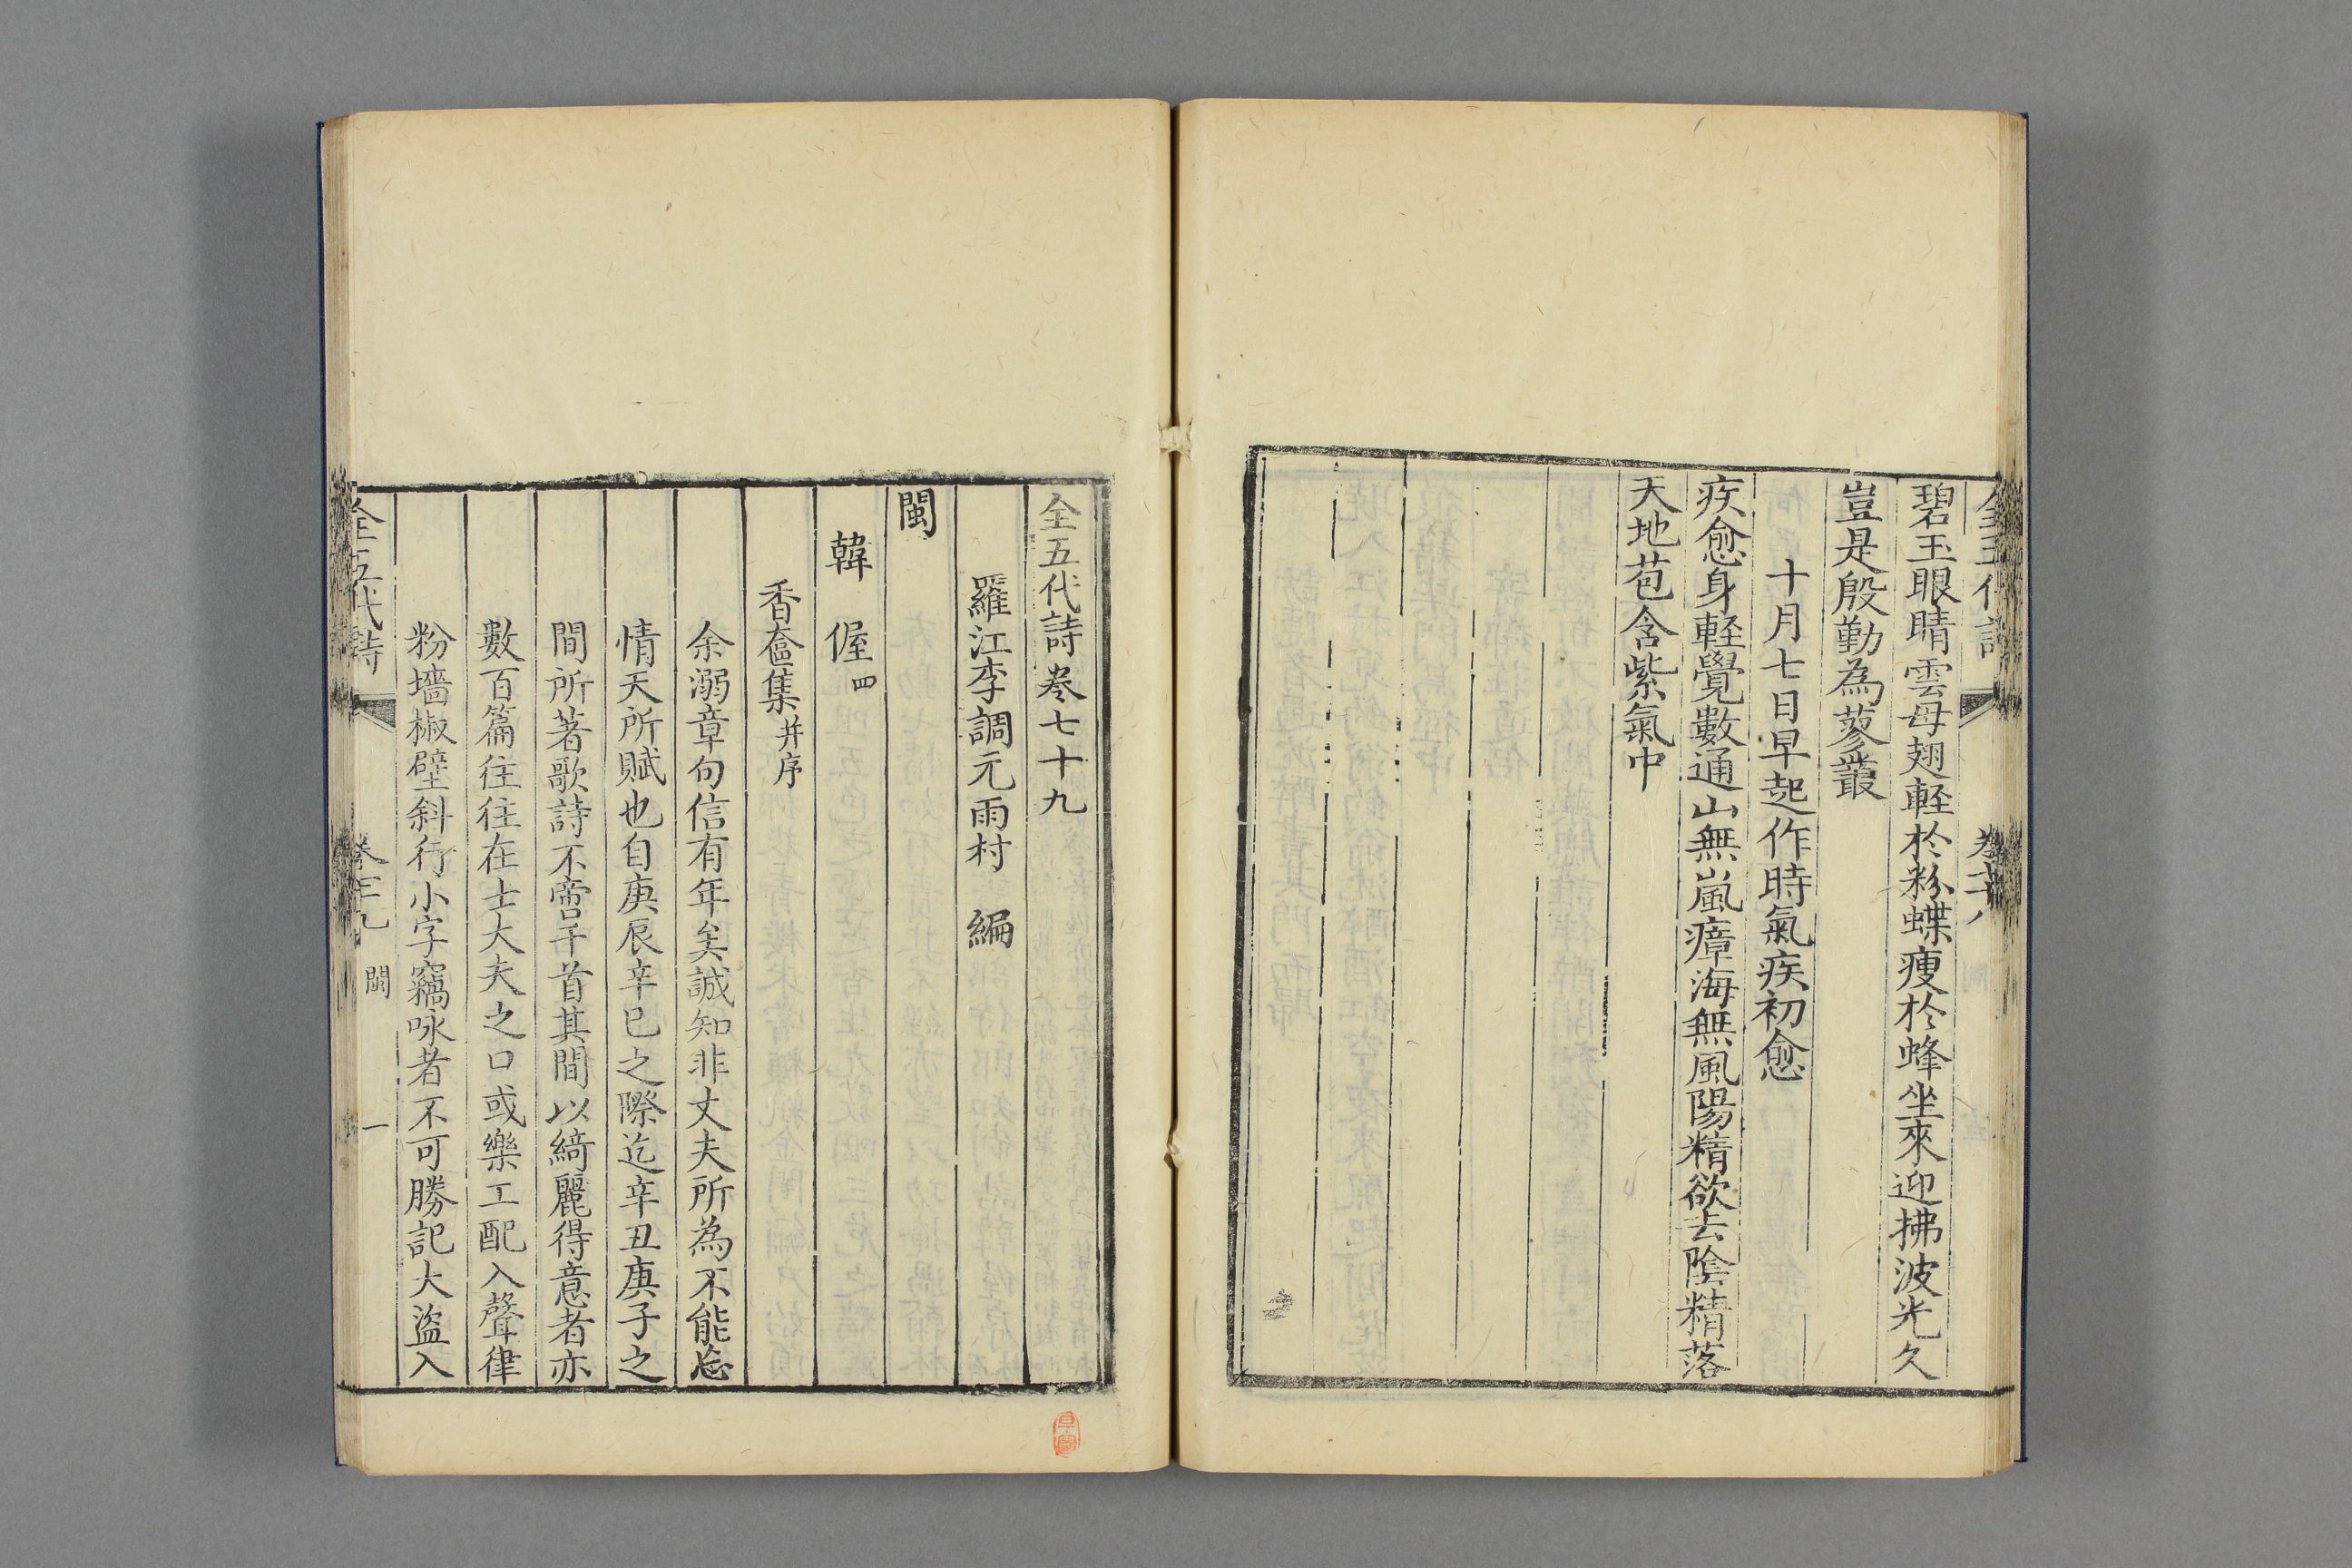 碧玉眼睛雲母翅輕於粉蝶瘦於蜂坐來迎拂波光久
豈是殷勤為蓼叢
十月七日早起作時氣疾初愈
疾愈身輕覺數通山無嵐瘴海無風陽精欲去陰精落
天地苞含紫氣中
全五代詩卷七十九
羅江李調元雨村 編
閩
韓偓四
香奩集并序
余溺章句信有年矣誠知非丈夫所為不能忘
情天所賦也自庚辰辛巳之際迄辛丑庚子之
間所著歌詩不啻千首其間以綺麗得意者亦
數百篇往往在士大夫之口或樂工配入聲律
粉墻椒壁斜行小字竊咏者不可勝記大盜入
全五代詩 卷七十九 閩 一